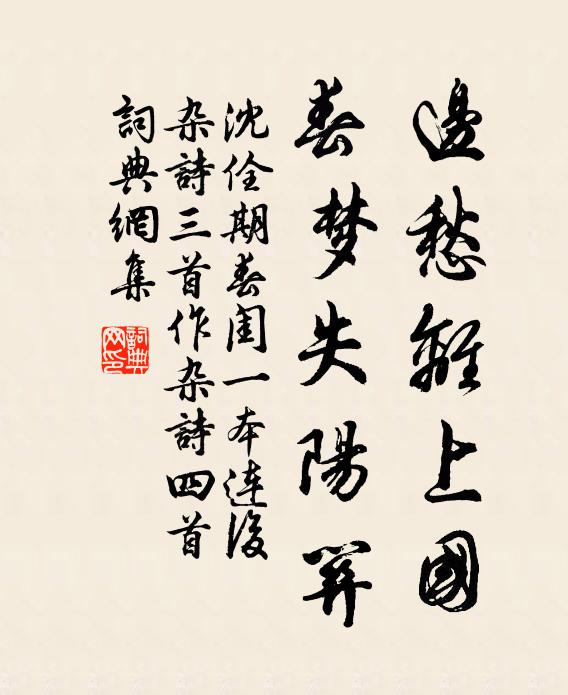 邊愁離上國
春梦失陽關
沈佺期春闺一本連後
杂詩三首作杂詩四首
詞典網集
詞典網印